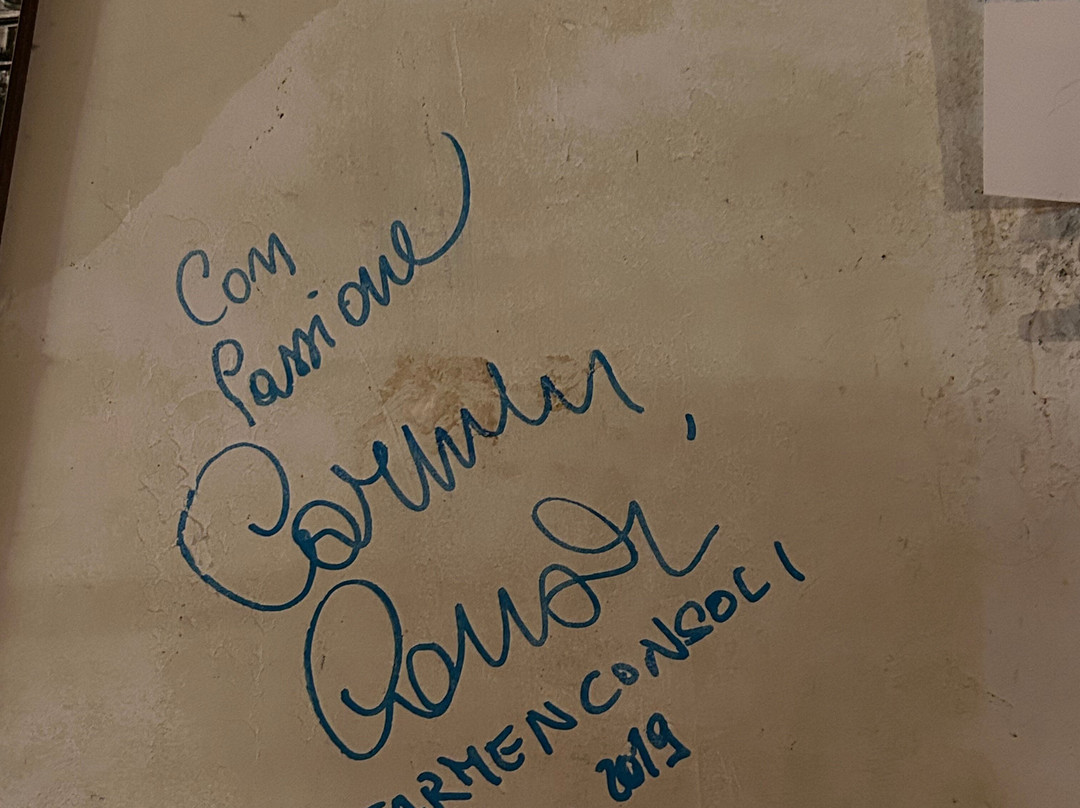 Con
Passione
Carmen
Consoli
CARMEN CONSOLI
2019